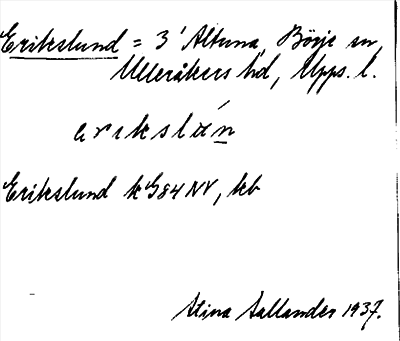 Erikslund = 3 Altuna, Börje sn,
Ulleråkers hd, Upps. l.
erikslún
Erikslund k G84 NV, kb
Stina Sallander 1937.